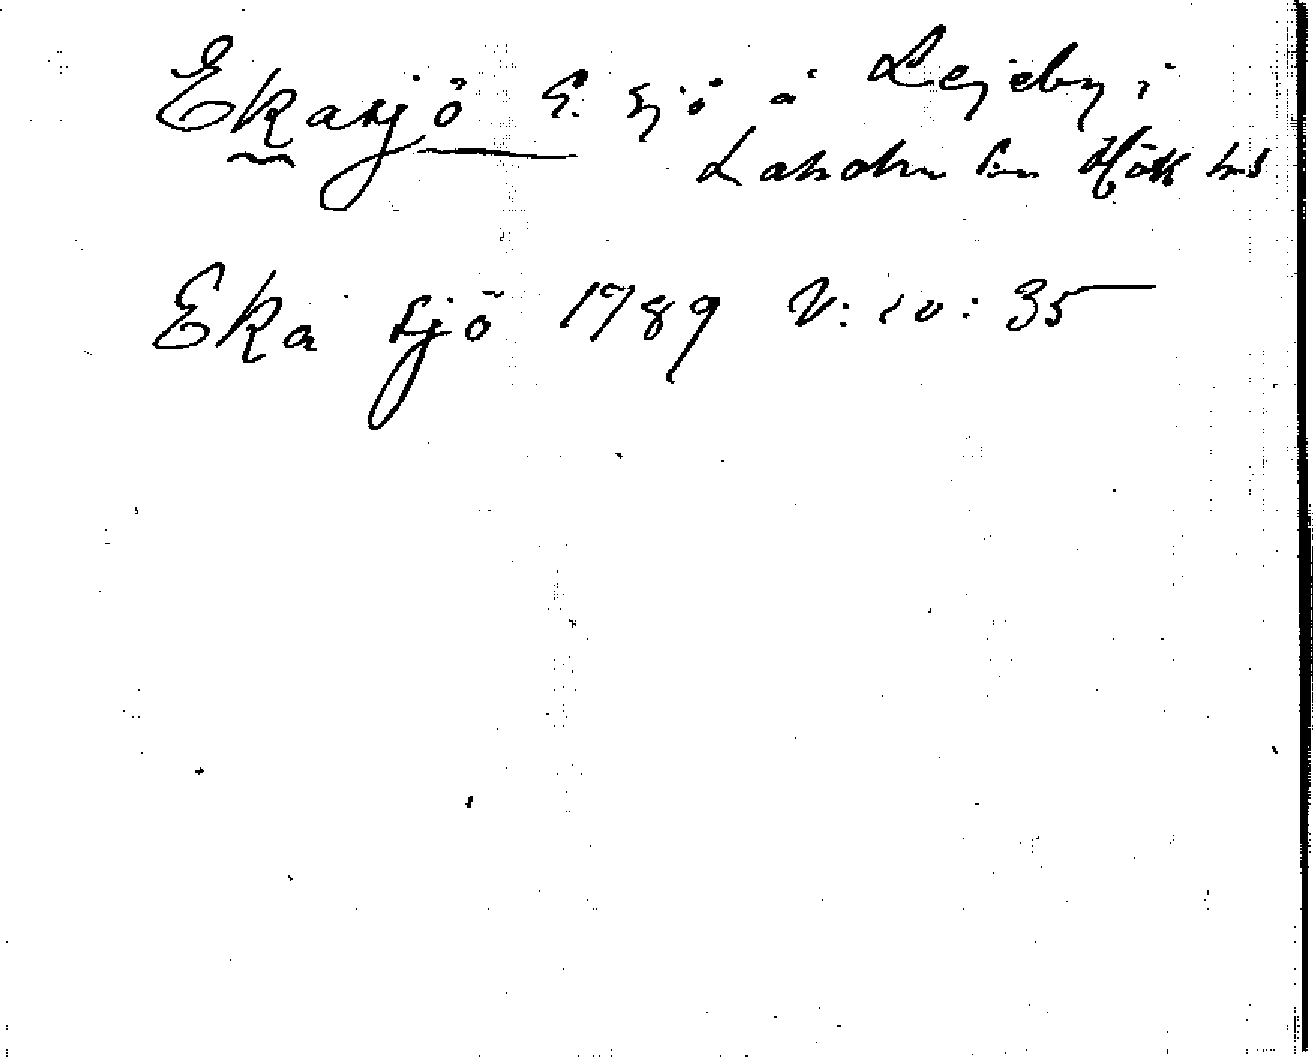 Ekasjö f. sjö å Lejeby i
Laholm sn Hök hd
Eka sjö 1789 V: 10: 35